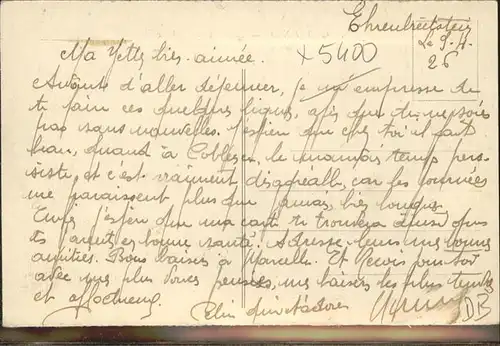 Ehrenbreitstein
Le 9-4-26
x5400
Ma Yette très-aimée.
Avant d'aller déjeuner, je m'empresse de
te faire ces quelques lignes, afin que tu ne sois
pas sans nouvelles. J'espère que chez toi il fait
beau, quant à Coblence, le mauvais temps per-
siste, et c'est vraiment désagréable, car les journées
me paraissent plus que jamais, très longues.
Enfin j'espère que ma carte te trouvera ainsi que
tes parents en bonne santé. Adresse-leurs mes bonnes
amitiés. Bons baisers à Marcelle. Et reçois pour toi
avec mes plus douces pensées, mes baisers les plus tendres
et affectueux.
DB